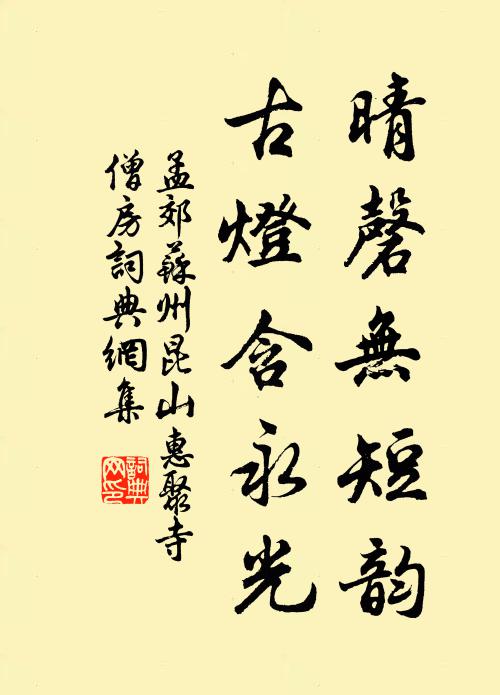 晴磬無短韵
古燈含永光
孟郊蘇州昆山惠聚寺
僧房詞典網集
詞典
网印